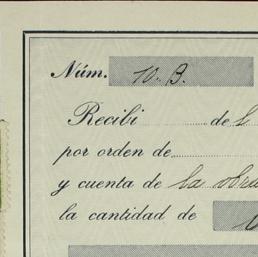 Núm. 10. B.
Recibí de
por orden de
y cuenta de la obra
la cantidad de